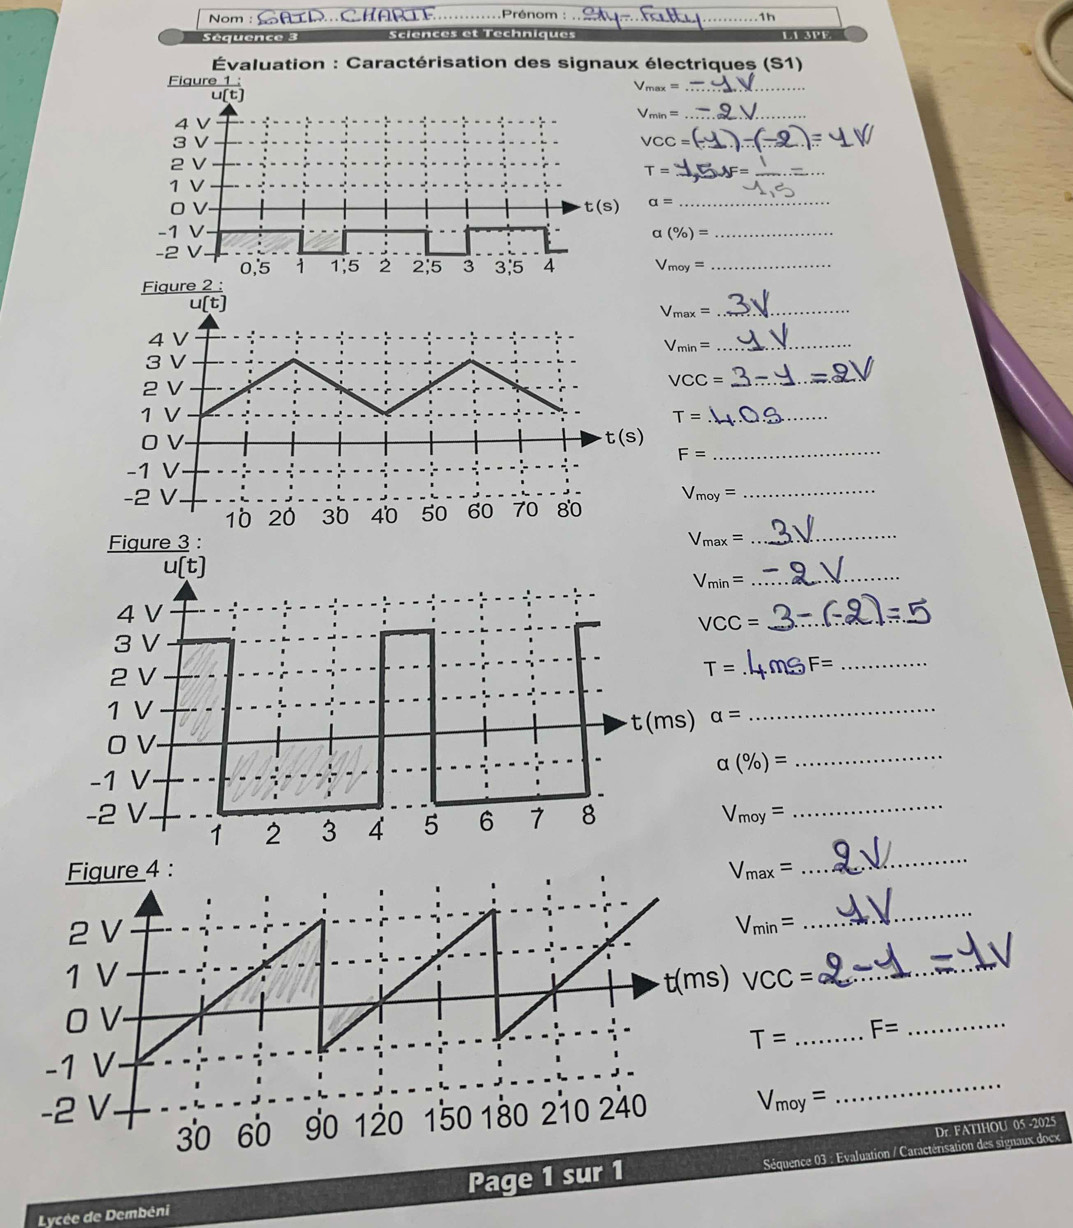 Nom : SAID CHARIF Prénom : Sty-Fatty 1h
Séquence 3 Sciences et Techniques L1 3PE
Évaluation : Caractérisation des signaux électriques (S1)
Figure 1 :
u(t)
4 V
3 V
2 V
1 V
0 V
-1 V
-2 V
t(s)
0,5 1 1,5 2 2,5 3 3,5 4
Vmax = -1V
Vmin = -2V
VCC = (-1)-(-2)= 1V
T = 1,5s F= 1/1,5 =
α =
α (%) =
Vmoy =
Figure 2 :
u(t)
4 V
3 V
2 V
1 V
0 V
-1 V
-2 V
t(s)
10 20 30 40 50 60 70 80
Vmax = 3V
Vmin = 1V
VCC = 3-1 = 2V
T = 40s
F =
Vmoy =
Figure 3 :
u(t)
4 V
3 V
2 V
1 V
0 V
-1 V
-2 V
t(ms)
1 2 3 4 5 6 7 8
Vmax = 3V
Vmin = -2V
VCC = 3-(-2)=5
T = 4ms F=
α =
α (%) =
Vmoy =
Figure 4 :
2 V
1 V
0 V
-1 V
-2 V
t(ms)
30 60 90 120 150 180 210 240
Vmax = 2V
Vmin = 1V
VCC = 2-1 = 1V
T = F=
Vmoy =
Dr. FATIHOU 05-2025
Séquence 03 : Evaluation / Caractérisation des signaux.docx
Page 1 sur 1
Lycée de Dembéni